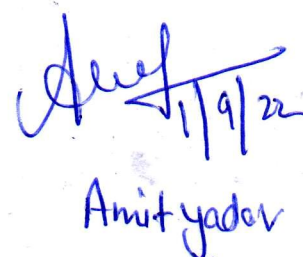 1/9/22
Amit yadav